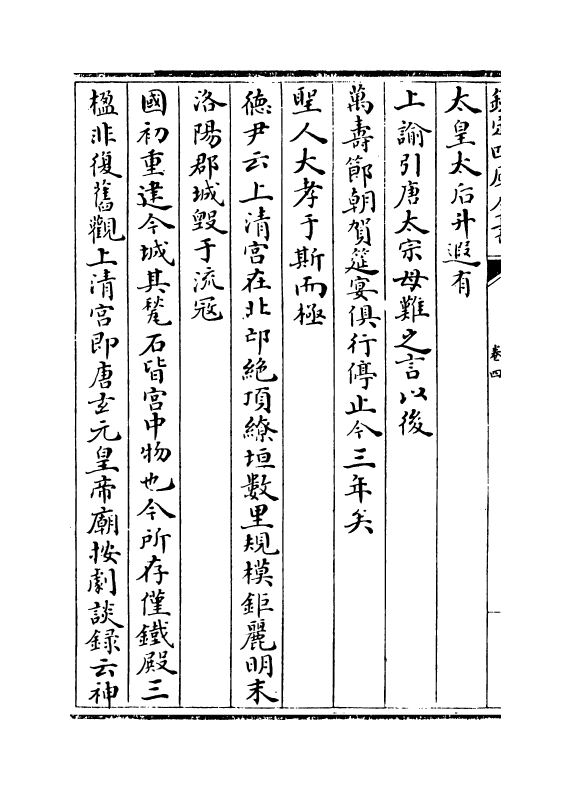 欽定四庫全書
卷四
太皇太后升遐有
上諭引唐太宗母難之言以後
萬壽節朝賀筵宴俱行停止今三年矣
聖人大孝于斯而極
徳尹云上清宮在北邙絶頂繚垣數里規模鉅麗明末
洛陽郡城毀于流冦
國初重建今城其甃石皆宮中物也今所存僅鐵殿三
楹非復舊觀上清宮即唐玄元皇帝廟按劇談録云神